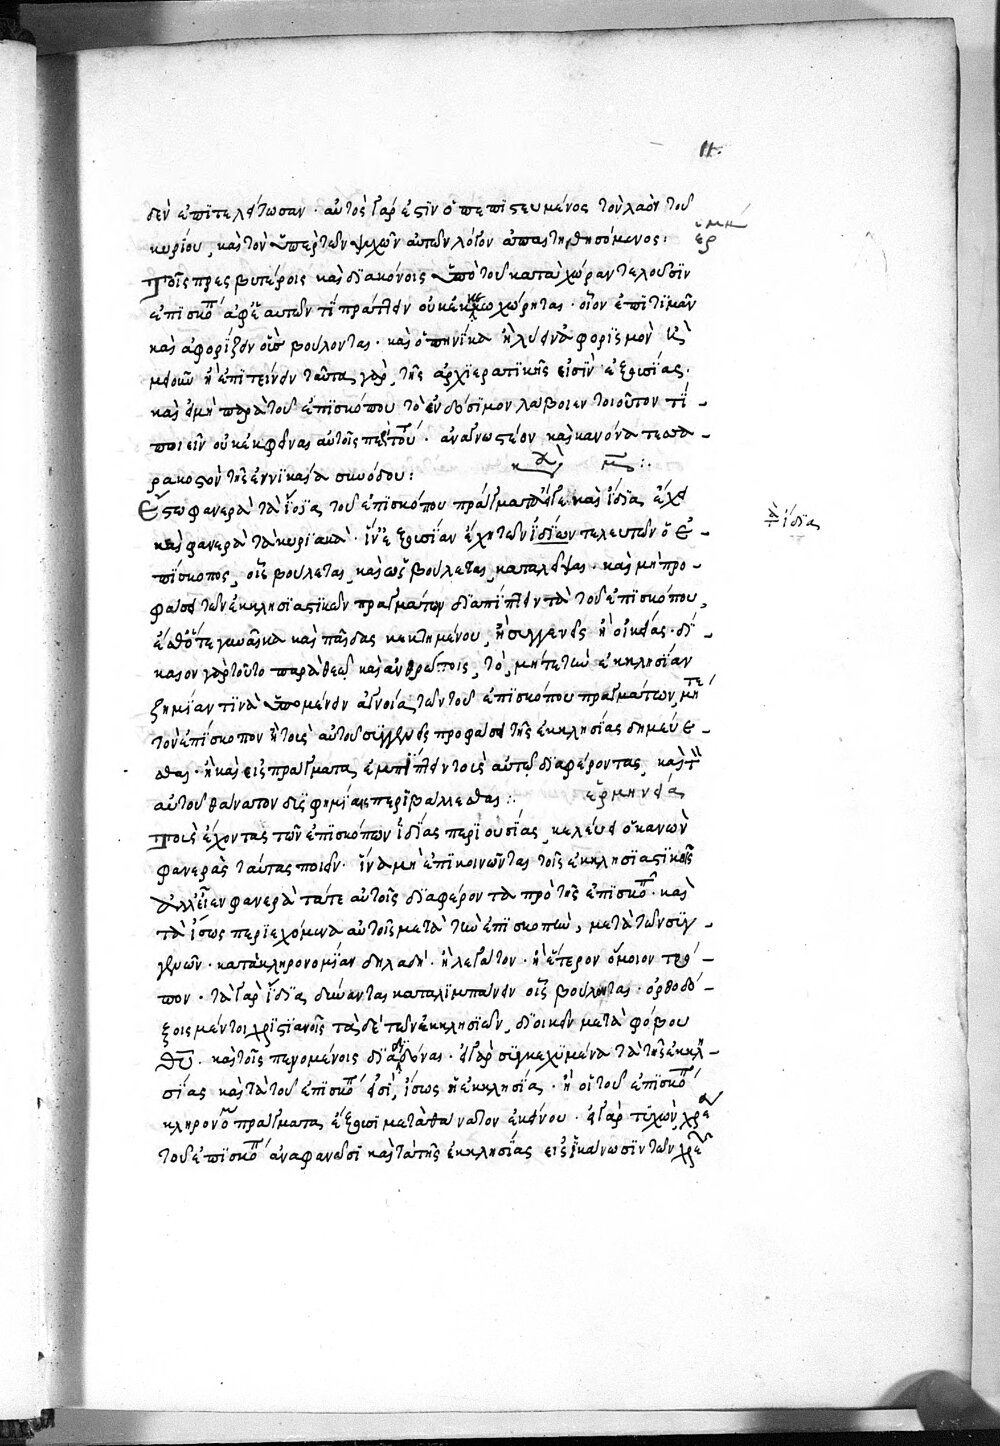 11.
δὲν ἐπιτελείτωσαν. αὐτὸς γάρ ἐστιν ὁ πεπιστευμένος τὸν λαὸν τοῦ
κυρίου, καὶ τὸν ὑπὲρ τῶν ψυχῶν αὐτῶν λόγον ἀπαιτηθησόμενος:
ἑρ
Τοῖς πρεσβυτέροις καὶ διακόνοις ὑπὸ τοῦ κατὰ χώραν τελοῦσιν
ἐπισκοπ ἀφ' ἑαυτῶν τὶ πράττειν οὐκ ἐκχώρηται. οἷον ἐπιτιμᾶν
καὶ ἀφορίζειν οὓς βούλονται. καὶ ὁπηνίκα ἢ λύειν ἀφορισμὸν ἢ
μειοῦν ἢ ἐπιτείνειν ταῦτα γὰρ, τῆς ἀρχιερατικῆς εἰσὶν ἐξουσίας.
καὶ εἰ μὴ παρὰ τοῦ ἐπισκόπου τὸ ἐνδόσιμον λάβοιεν τοιοῦτον τὶ
ποιεῖν οὐκ ἐφεῖναι αὐτοῖς . ἀναγνωστέον καὶ κανόνα τεσσα-
ρακοστὸν τῆς ἐν νικαία συνόδου:
κα μ:.
Ἔστω φανερὰ τὰ ἴδια τοῦ ἐπισκόπου πράγματα εἴγε καὶ ἴδια ἔχει
καὶ φανερὰ τὰ κυριακὰ. ἵν' ἐξουσίαν ἔχη τῶν ἰδίων τελευτῶν ὁ ἐ-
ἴδια
πίσκοπος, οἷς βούλεται, καὶ ὡς βούλεται, καταλεῖψαι. καὶ μὴ προ-
φάσει τῶν ἐκκλησιαστικῶν πραγμάτων διαπίπτειν τὰ τοῦ ἐπισκόπου,
ἔσθ' ὅτε γυναῖκα καὶ παῖδας κεκτημένου, ἢ συγγενεῖς ἢ οἰκέτας. δί-
καιον γὰρ τοῦτο παρὰ θεῷ καὶ ἀνθρώποις, τὸ, μήτε τὴν ἐκκλησίαν
ζημίαν τινὰ ὑπομένειν ἀγνοία τῶν τοῦ ἐπισκόπου πραγμάτων, μήτε
τὸν ἐπίσκοπον ἢ τοὺς αὐτοῦ συγγενεῖς προφάσει τῆς ἐκκλησίας δημεύε-
σθαι. ἢ καὶ εἰς πράγματα ἐμπίπτειν τοὺς αὐτῷ διαφέροντας, καὶ τὸν
αὐτοῦ θάνατον δυσφημίαις περιβάλλεσθαι:. ἑρμηνεία
Τοὺς ἔχοντας τῶν ἐπισκόπων ἰδίας περιουσίας, κελεύει ὁ κανὼν
φανερὰς ταύτας ποιεῖν. ἵνα μὴ ἐπικοινῶνται τοῖς ἐκκλησιαστικοῖς
ἀλλ' εἶεν φανερὰ τά τε αὐτοῖς διαφέροντα πρὸ τῆς ἐπισκοπ. καὶ
τὰ ἴσως περιεχόμενα αὐτοῖς μετὰ τὴν ἐπισκοπὴν, μετὰ τῶν συγ-
γενῶν. κατὰ κληρονομίαν δηλαδή. ἢ λεγάτον. ἢ ἕτερον ὅμοιον τρό-
πον. τὰ γὰρ ἴδια δύνανται καταλιμπάνειν οἷς βούλονται. ὀρθοδό-
ξοις μέντοι χριστιανοῖς τὰς δὲ τῶν ἐκκλησιῶν, διοικεῖν μετὰ φόβου
θυ. καὶ τοῖς πενομένοις διαδιδόναι. εἰ γὰρ συγκεχυμένα τὰ τῆς ἐκκλη-
σίας καὶ τὰ τοῦ ἐπισκοπ εἰσὶ, ἴσως ἡ ἐκκλησία. ἢ οἱ τοῦ ἐπισκοπ
κληρονό πράγματα ἕξουσι μετὰ θάνατον ἐκείνου. εἰ γὰρ τυχὸν χρέ
τοῦ ἐπισκοπ ἀναφανῶσι καὶ τὰ τῆς ἐκκλησίας εἰς ἱκάνωσιν τῶν χρε